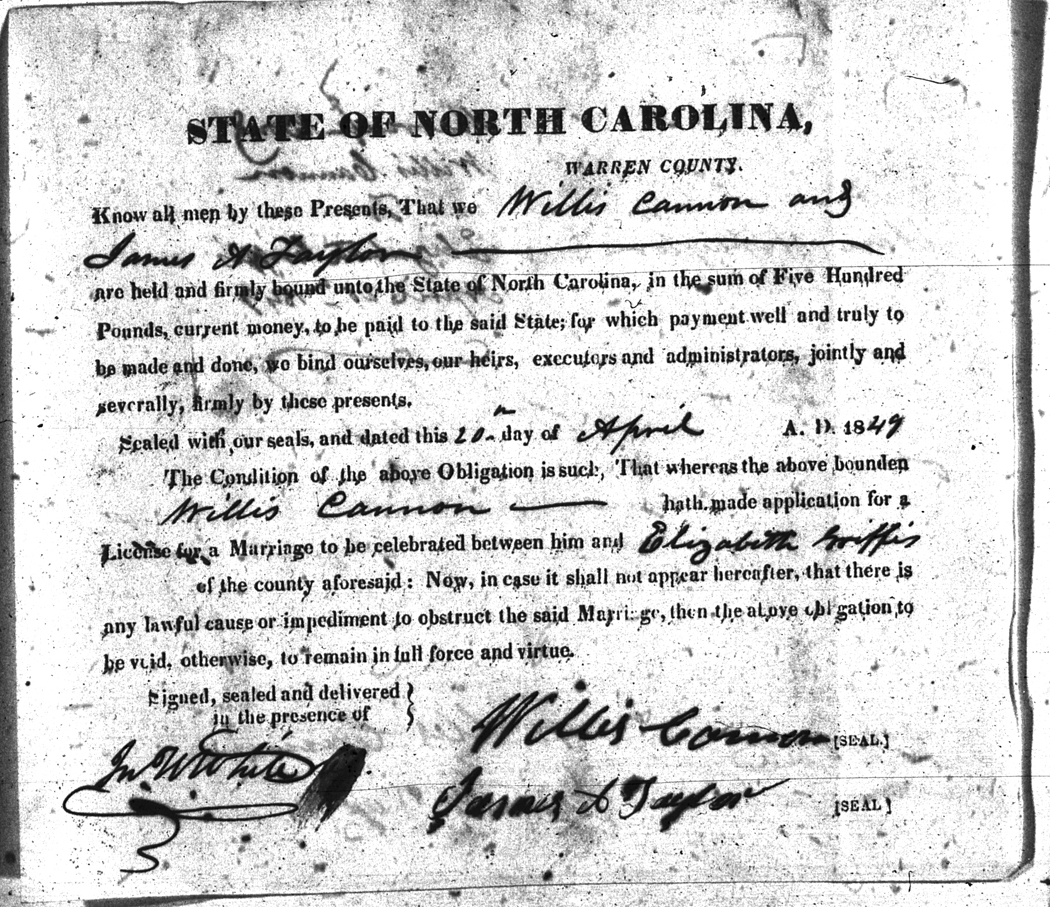 STATE OF NORTH CAROLINA,
WARREN COUNTY.
Know all men by these Presents, That we Willis Cannon and
James A Taylor
are held and firmly bound unto the State of North Carolina, in the sum of Five Hundred
Pounds, current money, to be paid to the said State; for which payment well and truly to
be made and done, we bind ourselves, our heirs, executors and administrators, jointly and
severally, firmly by these presents.
Sealed with our seals, and dated this 20 day of April A. D. 1849
The Condition of the above Obligation is such, That whereas the above bounden
Willis Cannon hath made application for a
License for a Marriage to be celebrated between him and Elizabeth Griffis
of the county aforesaid: Now, in case it shall not appear hereafter, that there is
any lawful cause or impediment to obstruct the said Marriage, then the above obligation to
be void, otherwise, to remain in full force and virtue.
Signed, sealed and delivered
in the presence of
Willis Cannon [SEAL.]
Jno W White
James A Taylor [SEAL]